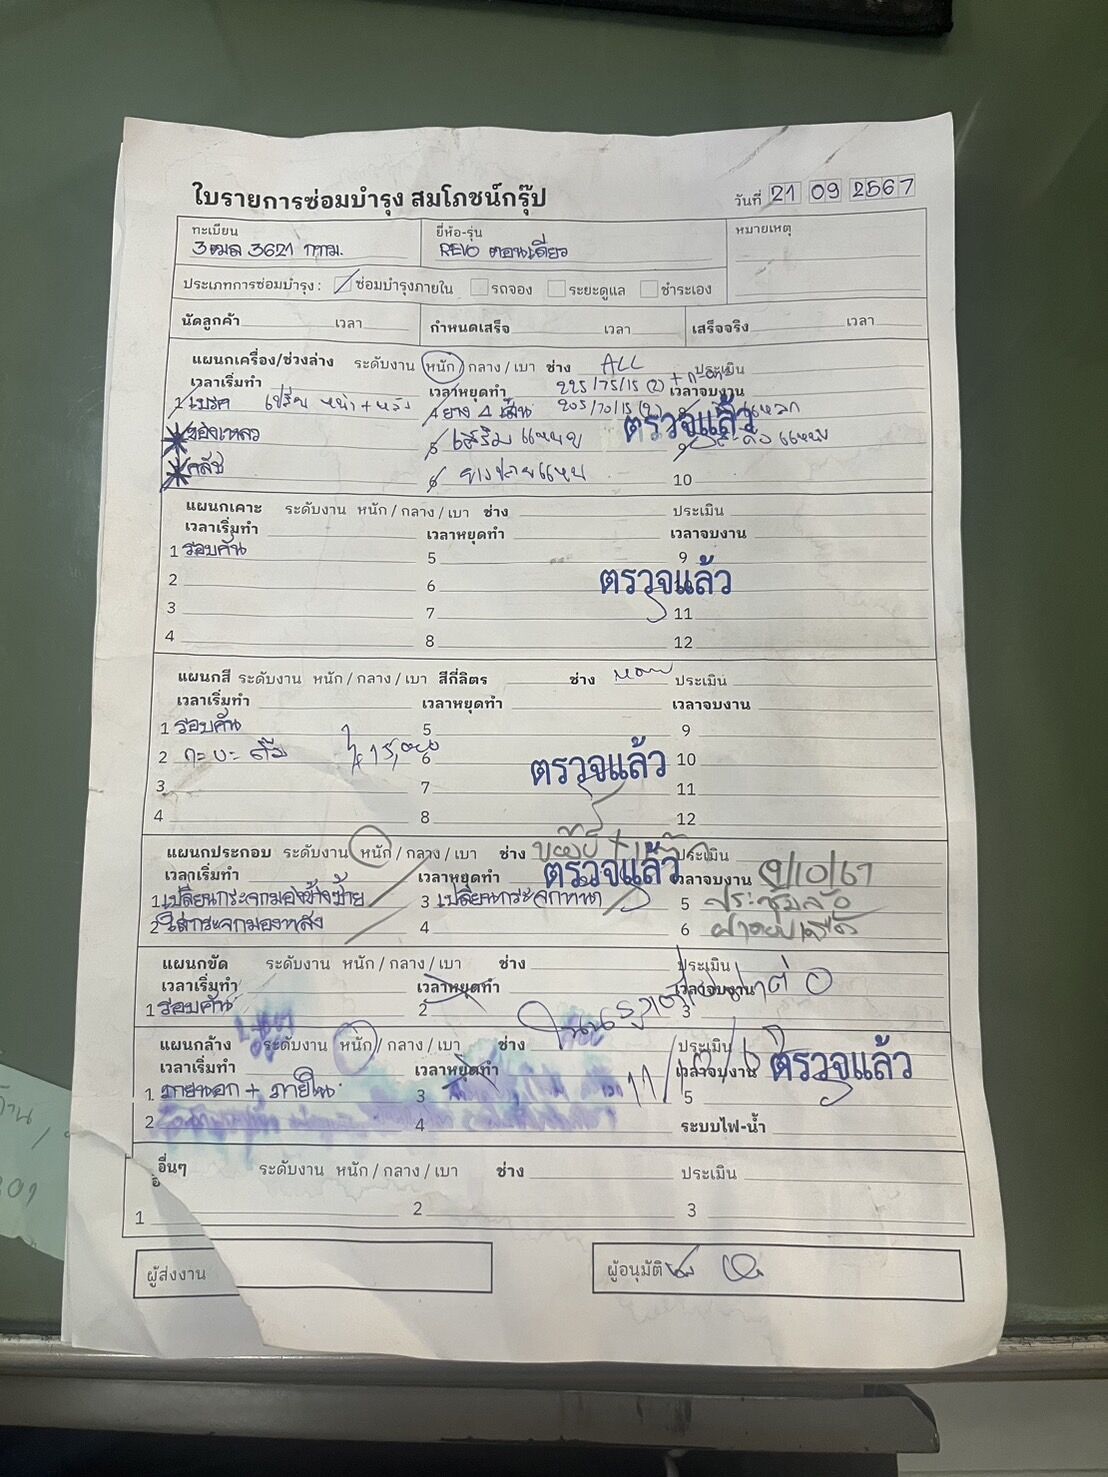 ใบรายการซ่อมบำรุง สมโภชน์กรุ๊ป
วันที่ 21 09 2567
ทะเบียน ยี่ห้อ-รุ่น หมายเหตุ
3621 กทม. REVO ตอนเดียว
ประเภทการซ่อมบำรุง: ซ่อมบำรุงภายใน รถจอง ระยะดูแล ชำระเอง
นัดลูกค้า เวลา กำหนดเสร็จ เวลา เสร็จจริง เวลา
แผนกเครื่อง/ช่วงล่าง ระดับงาน หนัก / กลาง / เบา ช่าง ALL ประเมิน
เวลาเริ่มทำ เวลาหยุดทำ 225/75/15 (2) เวลาจบงาน
1 เบรค เปลี่ยน หน้า + หลัง 4 ยาง 4 เส้น 205/70/15 (2) 8
ของเหลว 5 เสริมแหนบ ตรวจแล้ว 9
คลัช 6 ยาง 10
แผนกเคาะ ระดับงาน หนัก / กลาง / เบา ช่าง ประเมิน
เวลาเริ่มทำ เวลาหยุดทำ เวลาจบงาน
1 รอบคัน 5 9
2 6 ตรวจแล้ว
3 7 11
4 8 12
แผนกสี ระดับงาน หนัก / กลาง / เบา สีกี่ลิตร ช่าง ประเมิน
เวลาเริ่มทำ เวลาหยุดทำ เวลาจบงาน
1 รอบคัน 5 9
2 กะบะ 15,000 6 ตรวจแล้ว 10
3 7 11
4 8 12
แผนกประกอบ ระดับงาน หนัก / กลาง / เบา ช่าง ประเมิน
เวลาเริ่มทำ เวลาหยุดทำ ตรวจแล้ว เวลาจบงาน 9/10/67
1 เปลี่ยนกระจกมองข้างซ้าย 3 เปลี่ยนกระจกหน้า 5
2 ใส่กระจกมองหลัง 4 6
แผนกขัด ระดับงาน หนัก / กลาง / เบา ช่าง ประเมิน
เวลาเริ่มทำ เวลาหยุดทำ เวลาจบงาน
1 รอบคัน 2 3
แผนกล้าง ระดับงาน หนัก / กลาง / เบา ช่าง ประเมิน
เวลาเริ่มทำ เวลาหยุดทำ เวลาจบงาน ตรวจแล้ว
1 ภายนอก + ภายใน 3 5
2 4 ระบบไฟ-น้ำ
อื่นๆ ระดับงาน หนัก / กลาง / เบา ช่าง ประเมิน
1 2 3
ผู้ส่งงาน ผู้อนุมัติ